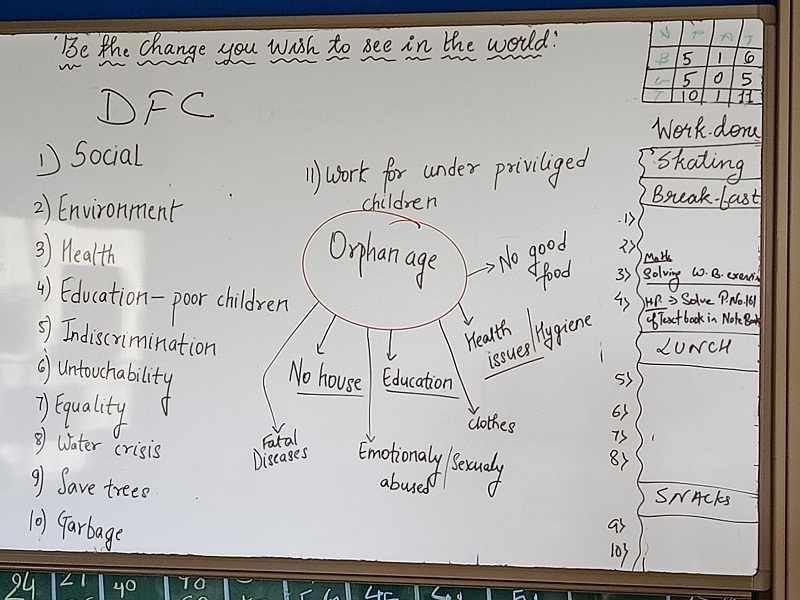 'Be the change you wish to see in the world'
DFC
1) Social
2) Environment
3) Health
4) Education - poor children
5) Indiscrimination
6) Untouchability
7) Equality
8) Water crisis
9) Save trees
10) Garbage
11) Work for under priviliged
children
Orphanage
No good
food
Health
issues/Hygiene
Clothes
Education
Emotionaly/Sexualy
abused
No house
Fatal
Diseases
B 5 1 6
5 0 5
T 10 1 11
Work done
Skating
Break-fast
1)
2)
Math
3) Solving W.B. exercis
4) HP → Solve P.No.161
of Textbook in Note Book
LUNCH
5)
6)
7)
8)
SNACKS
9)
10)
24 21 40